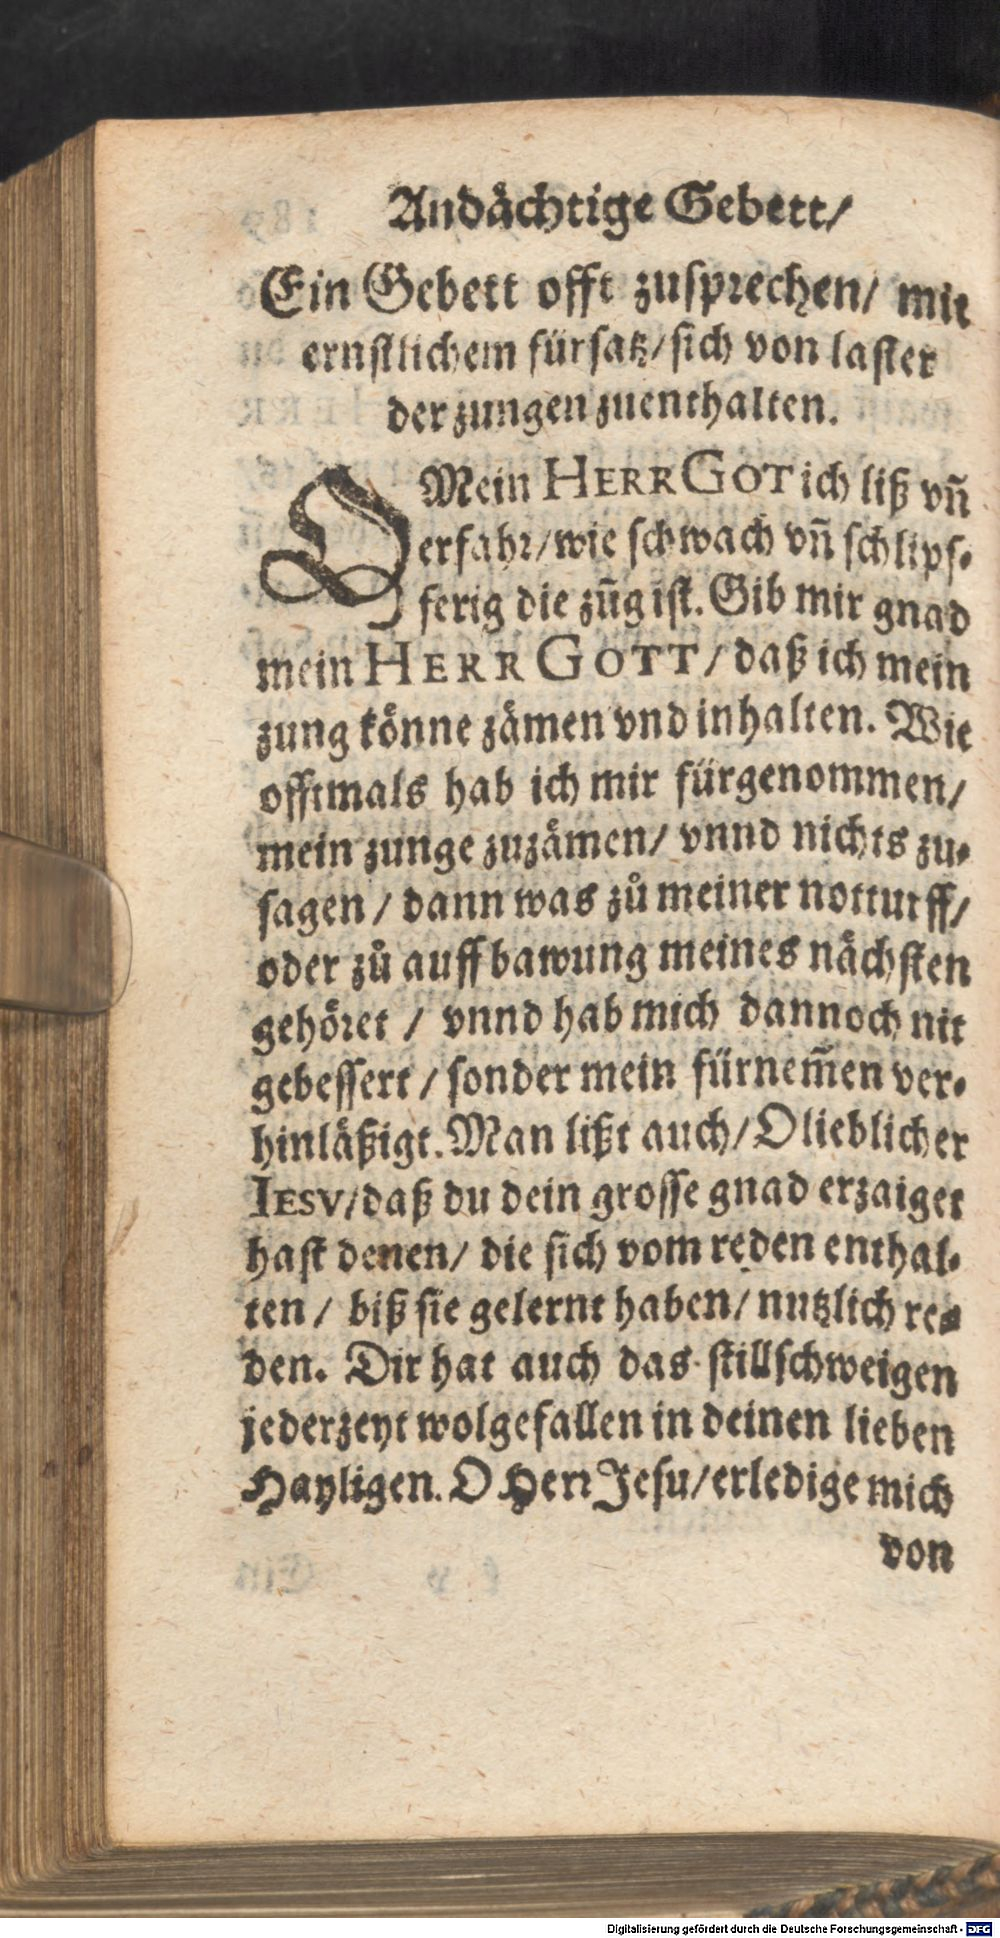 Andaͤchtige Gebett/
Ein Gebett offt zuſprechen/ mit
ernſtlichem fürſatz/ſich von laſter
der zungen zuenthalten.
O Mein HERR GOT ich liß vñ
erfahr/wie ſchwach vñ ſchlipf⸗
ferig die zũg iſt. Gib mir gnad
mein HERR GOTT/ daß ich mein
zung koͤnne zaͤmen vnd inhalten. Wie
offtmals hab ich mir fürgenommen/
mein zunge zuzaͤmen/ vnnd nichts zu⸗
ſagen/ dann was zuͦ meiner notturff/
oder zuͦ auffbawung meines naͤchſten
gehoͤret / vnnd hab mich dannoch nit
gebeſſert/ ſonder mein fürnem̃en ver⸗
hinlaͤßigt. Man lißt auch/ O lieblicher
IESV/daß du dein groſſe gnad erzaiget
haſt denen/ die ſich vom reden enthal⸗
ten/ biß ſie gelernt haben/ nutzlich re⸗
den. Dir hat auch das ſtillſchweigen
jederzeyt wolgefallen in deinen lieben
Hayligen. O Herr Jeſu/erledige mich
von
Digitalisierung gefördert durch die Deutsche Forschungsgemeinschaft - DFG